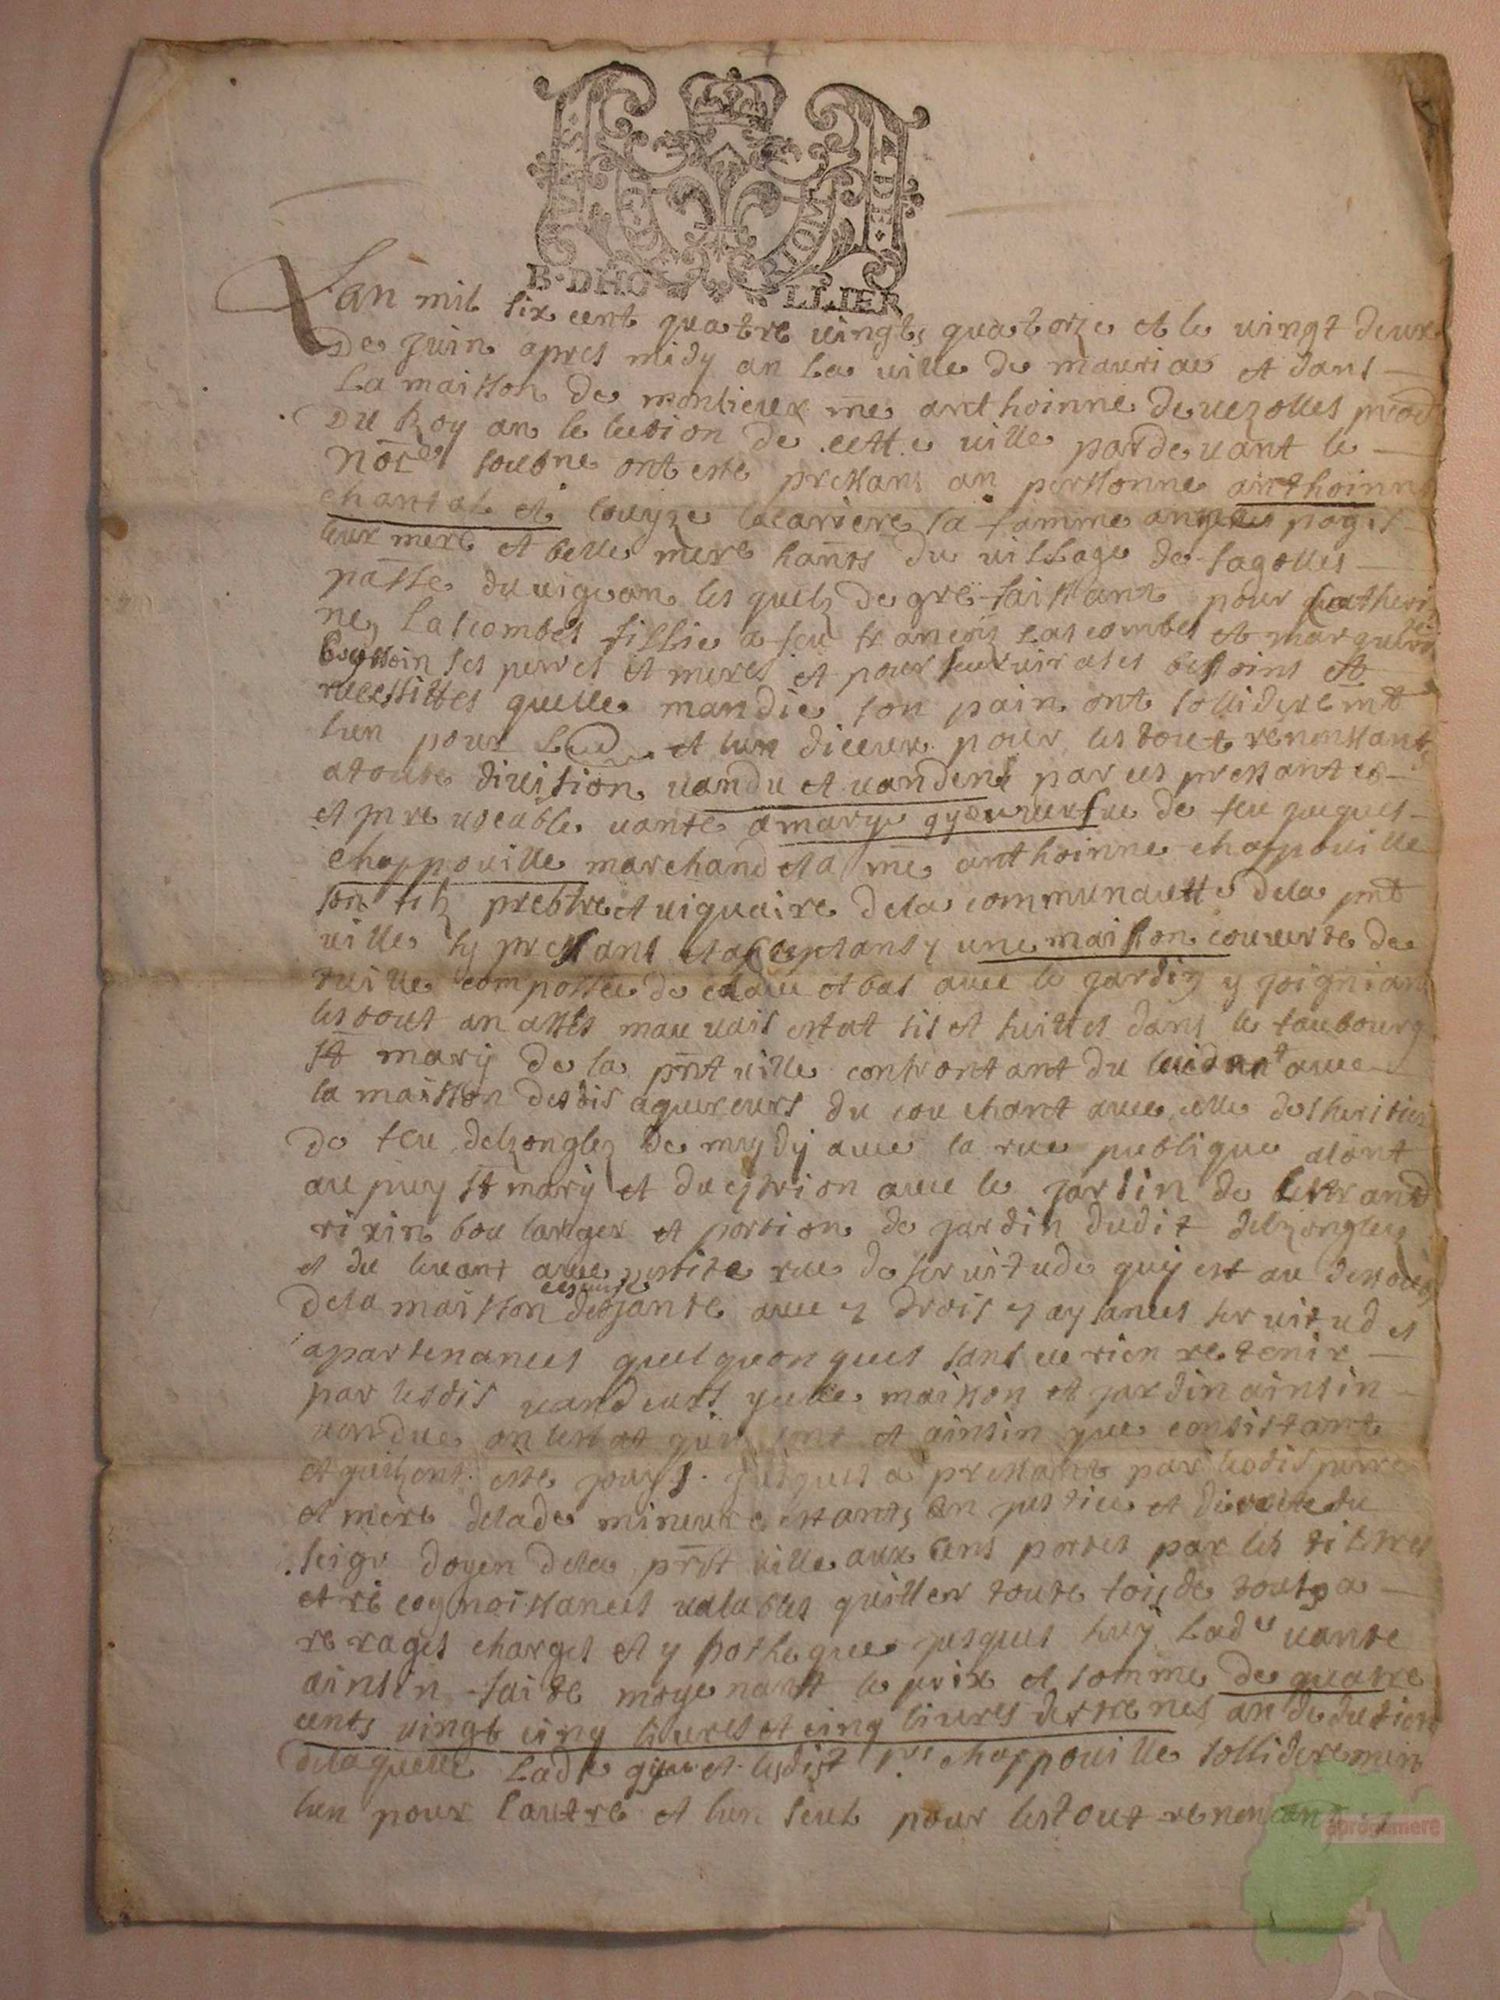 B · DHO LLIER
RIOM
Lan mil six cent quatre vingts quatorze et le vingt deux
De Juin apres midy an La ville de mauriac et dans
La maison de monsieur me anthoinne devezolles
Du Roy an le lection de cette ville pardevant le
Nore soubne ont este pressans an personne anthoinne
chantal et Louyze lacariere sa famme pages
leur mere et belle mere hants du village de fagolles
passe du vigean les quelz de gre faissant pour Catheri
ne Lascombes fillie a feu francois Lascombes et marguerite
ses perres et meres et pour survir a ses besoins et
necessittes quelle mandie son pain ont sollideremt
lun pour et lun diceux pour les tout renonssant
a toute division vandu et vandent par ces pressantes
et inrevocable vante a marye veufve de feu jacques
chappouille marchand et a me anthoinne chappouille
son filz prebtre et viquaire dela communautte dela pnt
ville sy pressans et acceptans une maison couverte de
tuille compossee de et bas avec le jardin y joigniant
lestout an asses mauvais estat sis et suittes dans le faubourg
st mary de la pnt ville confrontant du avec
la maison desdis aquereurs du couchant avec celle des heritiers
De feu delzonglez De mydy avec la rue publique alant
au puy st mary et du avec le jardin de
rixin boulanger et portion de jardin dudit delzongles
et du levant avec petite rue de servitude quy est au dessoubs
dela maison avec drois servitudes
apartenances quelquonques sans ce rien retenir
par lesdis vandeurs ycelle maison et jardin ainsin
vandue an lestat quis sont et ainsin que consistant
et quilz ont este jouys jusques a pressant par lesdis perre
et mere delade mineure estants en justice et directe du
seigr doyen dela pnt ville aux cens portes par les tiltres
et recognoissances valables quitter toute fois de tous a
rerages charges et ypotheques jusques huy Lade vante
ainsin faite moyenant le prix et somme de quatre
cents vingt cinq livres et cinq livres destrenes an deduction
delaquelle Lade et chappouille sollideremen
lun pour lautre et lun seul pour lestout renoncant
aprogemere